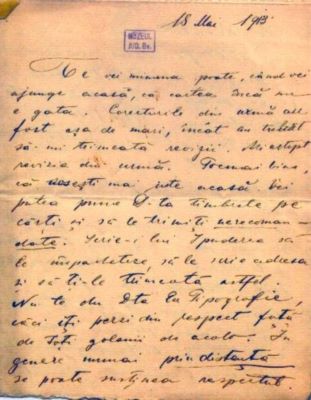 18 Mai 1913
MUZEUL
JUD. Bv.
Te vei mira poate, când vei
ajunge acasă, că cartea încă nu
e gata. Corecturile din urmă au
fost așa de mari, încât au trebuit
să-mi trimeată revizii. Aștept
revizia din urmă. Tocmai bine,
că sosești mai iute acasă căci
putea pune D-ta timbrele pe
cărți și să le trimiți nerecoman-
date. Scrie-i lui să
le împacheteze, să le scrie adresa
și să ți-le trimeată astfel
Nu te du D-ta în Tipografie,
căci îți perzi din respect față
de toți golanii de acolo. În
genere numai prin distanță
se poate susținea respectul.